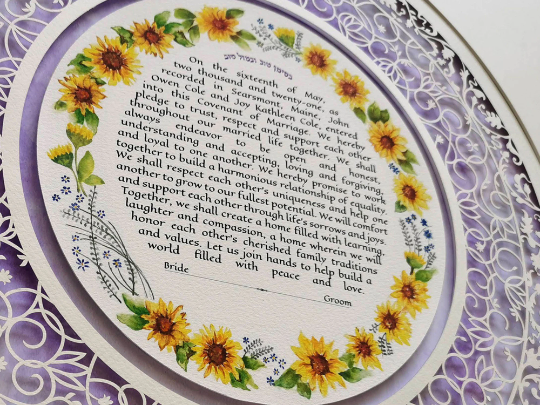 בסימן טוב ובמזל טוב
On the sixteenth of May,
two thousand and twenty-one, as
recorded in Searsmont, Maine, John
Owen Cole and Joy Kathleen Cole, entered
into this Covenant of Marriage. We hereby
pledge to trust, respect and support each other
throughout our married life together. We shall
always endeavor to be open and honest,
understanding and accepting, loving and forgiving,
and loyal to one another. We hereby promise to work
together to build a harmonious relationship of equality.
We shall respect each other's uniqueness and help one
another to grow to our fullest potential. We will comfort
and support each other through life's sorrows and joys.
Together, we shall create a home filled with learning,
laughter and compassion, a home wherein we will
honor each other's cherished family traditions
and values. Let us join hands to help build a
world filled with peace and love.
Bride
Groom